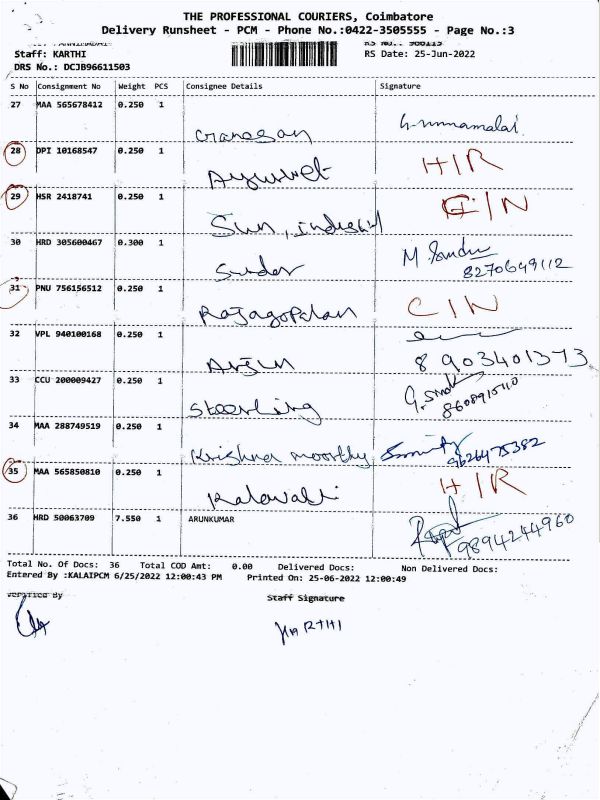 THE PROFESSIONAL COURIERS, Coimbatore
Delivery Runsheet - PCM - Phone No.:0422-3505555 - Page No.:3
Staff: KARTHI RS Date: 25-Jun-2022
DRS No.: DCJB96611503
S No Consignment No Weight PCS Consignee Details Signature
27 MAA 565678412 0.250 1
Ganesan G. Unnamalai
28 DPI 10168547 0.250 1
Ayurvet H/R
29 HSR 2418741 0.250 1 C/N
Sun, industry
30 HRD 305600467 0.300 1 M. Sundar
Sundar 8270649112
31 PNU 756156512 0.250 1
Rajagopalan C/N
32 VPL 940100168 0.250 1
Arjun 8903401373
33 CCU 200009427 0.250 1
Steerling 8608915110
34 MAA 288749519 0.250 1
Krishna moorthy 9626475382
35 MAA 565850810 0.250 1 H/R
Kalavalli
36 HRD 50063709 7.550 1 ARUNKUMAR
9894244960
Total No. Of Docs: 36 Total COD Amt: 0.00 Delivered Docs: Non Delivered Docs:
Entered By :KALAIPCM 6/25/2022 12:00:43 PM Printed On: 25-06-2022 12:00:49
Verified By Staff Signature
KARTHI